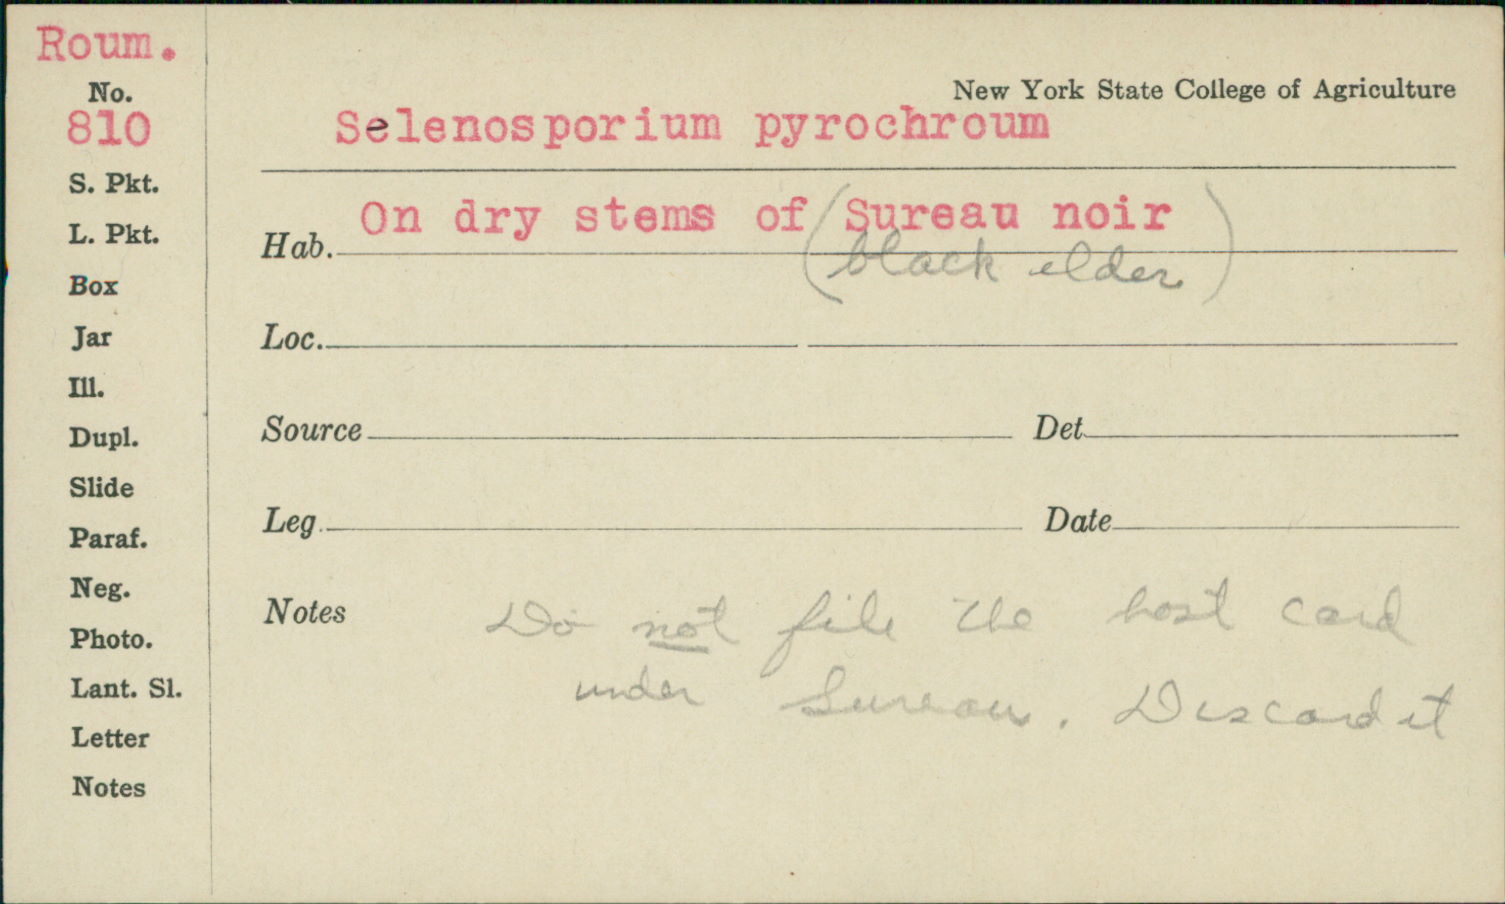 Roum.
No.
810
S. Pkt.
L. Pkt.
Box
Jar
Ill.
Dupl.
Slide
Paraf.
Neg.
Photo.
Lant. Sl.
Letter
Notes
New York State College of Agriculture
Selenosporium pyrochroum
Hab. On dry stems of (Sureau noir
black elder)
Loc.
Source Det.
Leg. Date
Notes Do not file the host card
under Sureau. Discard it